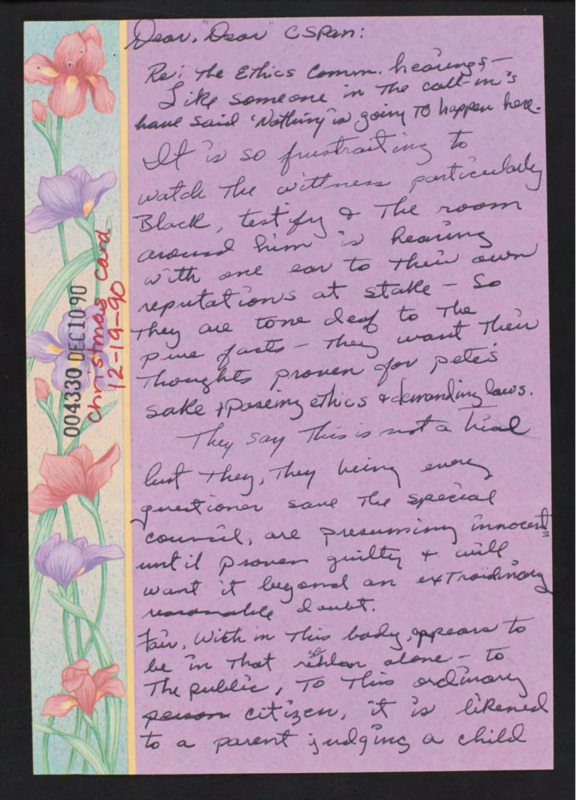 Dear, "Dear" CSPan:
Re: The Ethics Comm. hearings -
Like someone in the call-in's
have said 'Nothing' is going to happen here.
It is so frustraiting to
watch the wittness particularly
Black, testify & the room
around him is hearing
with one ear to their own
reputations at stake - So
They are tone deaf to the
pure facts - They want their
thoughts proven for pete's
sake ethics & demanding laws.
They say this is not a trial
but they, they being every
questioner save the special
council, are presuming innocents
until proven guilty & will
want it beyond an extraordinary
reasonable doubt.
Fair, with in this body appears to
be in that alone - to
The public, To this ordinary
person citizen, it is likened
to a parent judging a child
004330 DEC 10 90
Christmas card
12-19-90